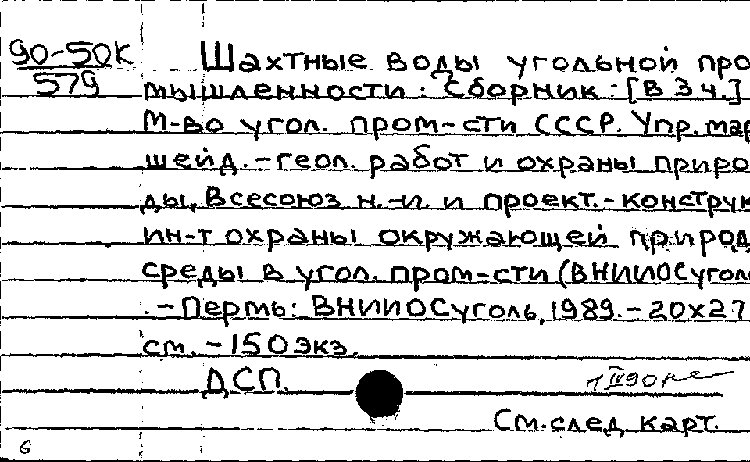 90-50К
579
Шахтные воды угольной про
мышленности : Сборник : [В 3 ч.]
М-во угол. пром-сти СССР. Упр. мар
шейд.-геол. работ и охраны приро
ды, Всесоюз н.-и. и проект.-конструк
ин-т охраны окружающей природ
среды в угол. пром-сти (ВНИИОСугол
. - Пермь : ВНИИОСуголь, 1989. - 20х27
см. - 150 экз.
ДСП.
См. след. карт.
6